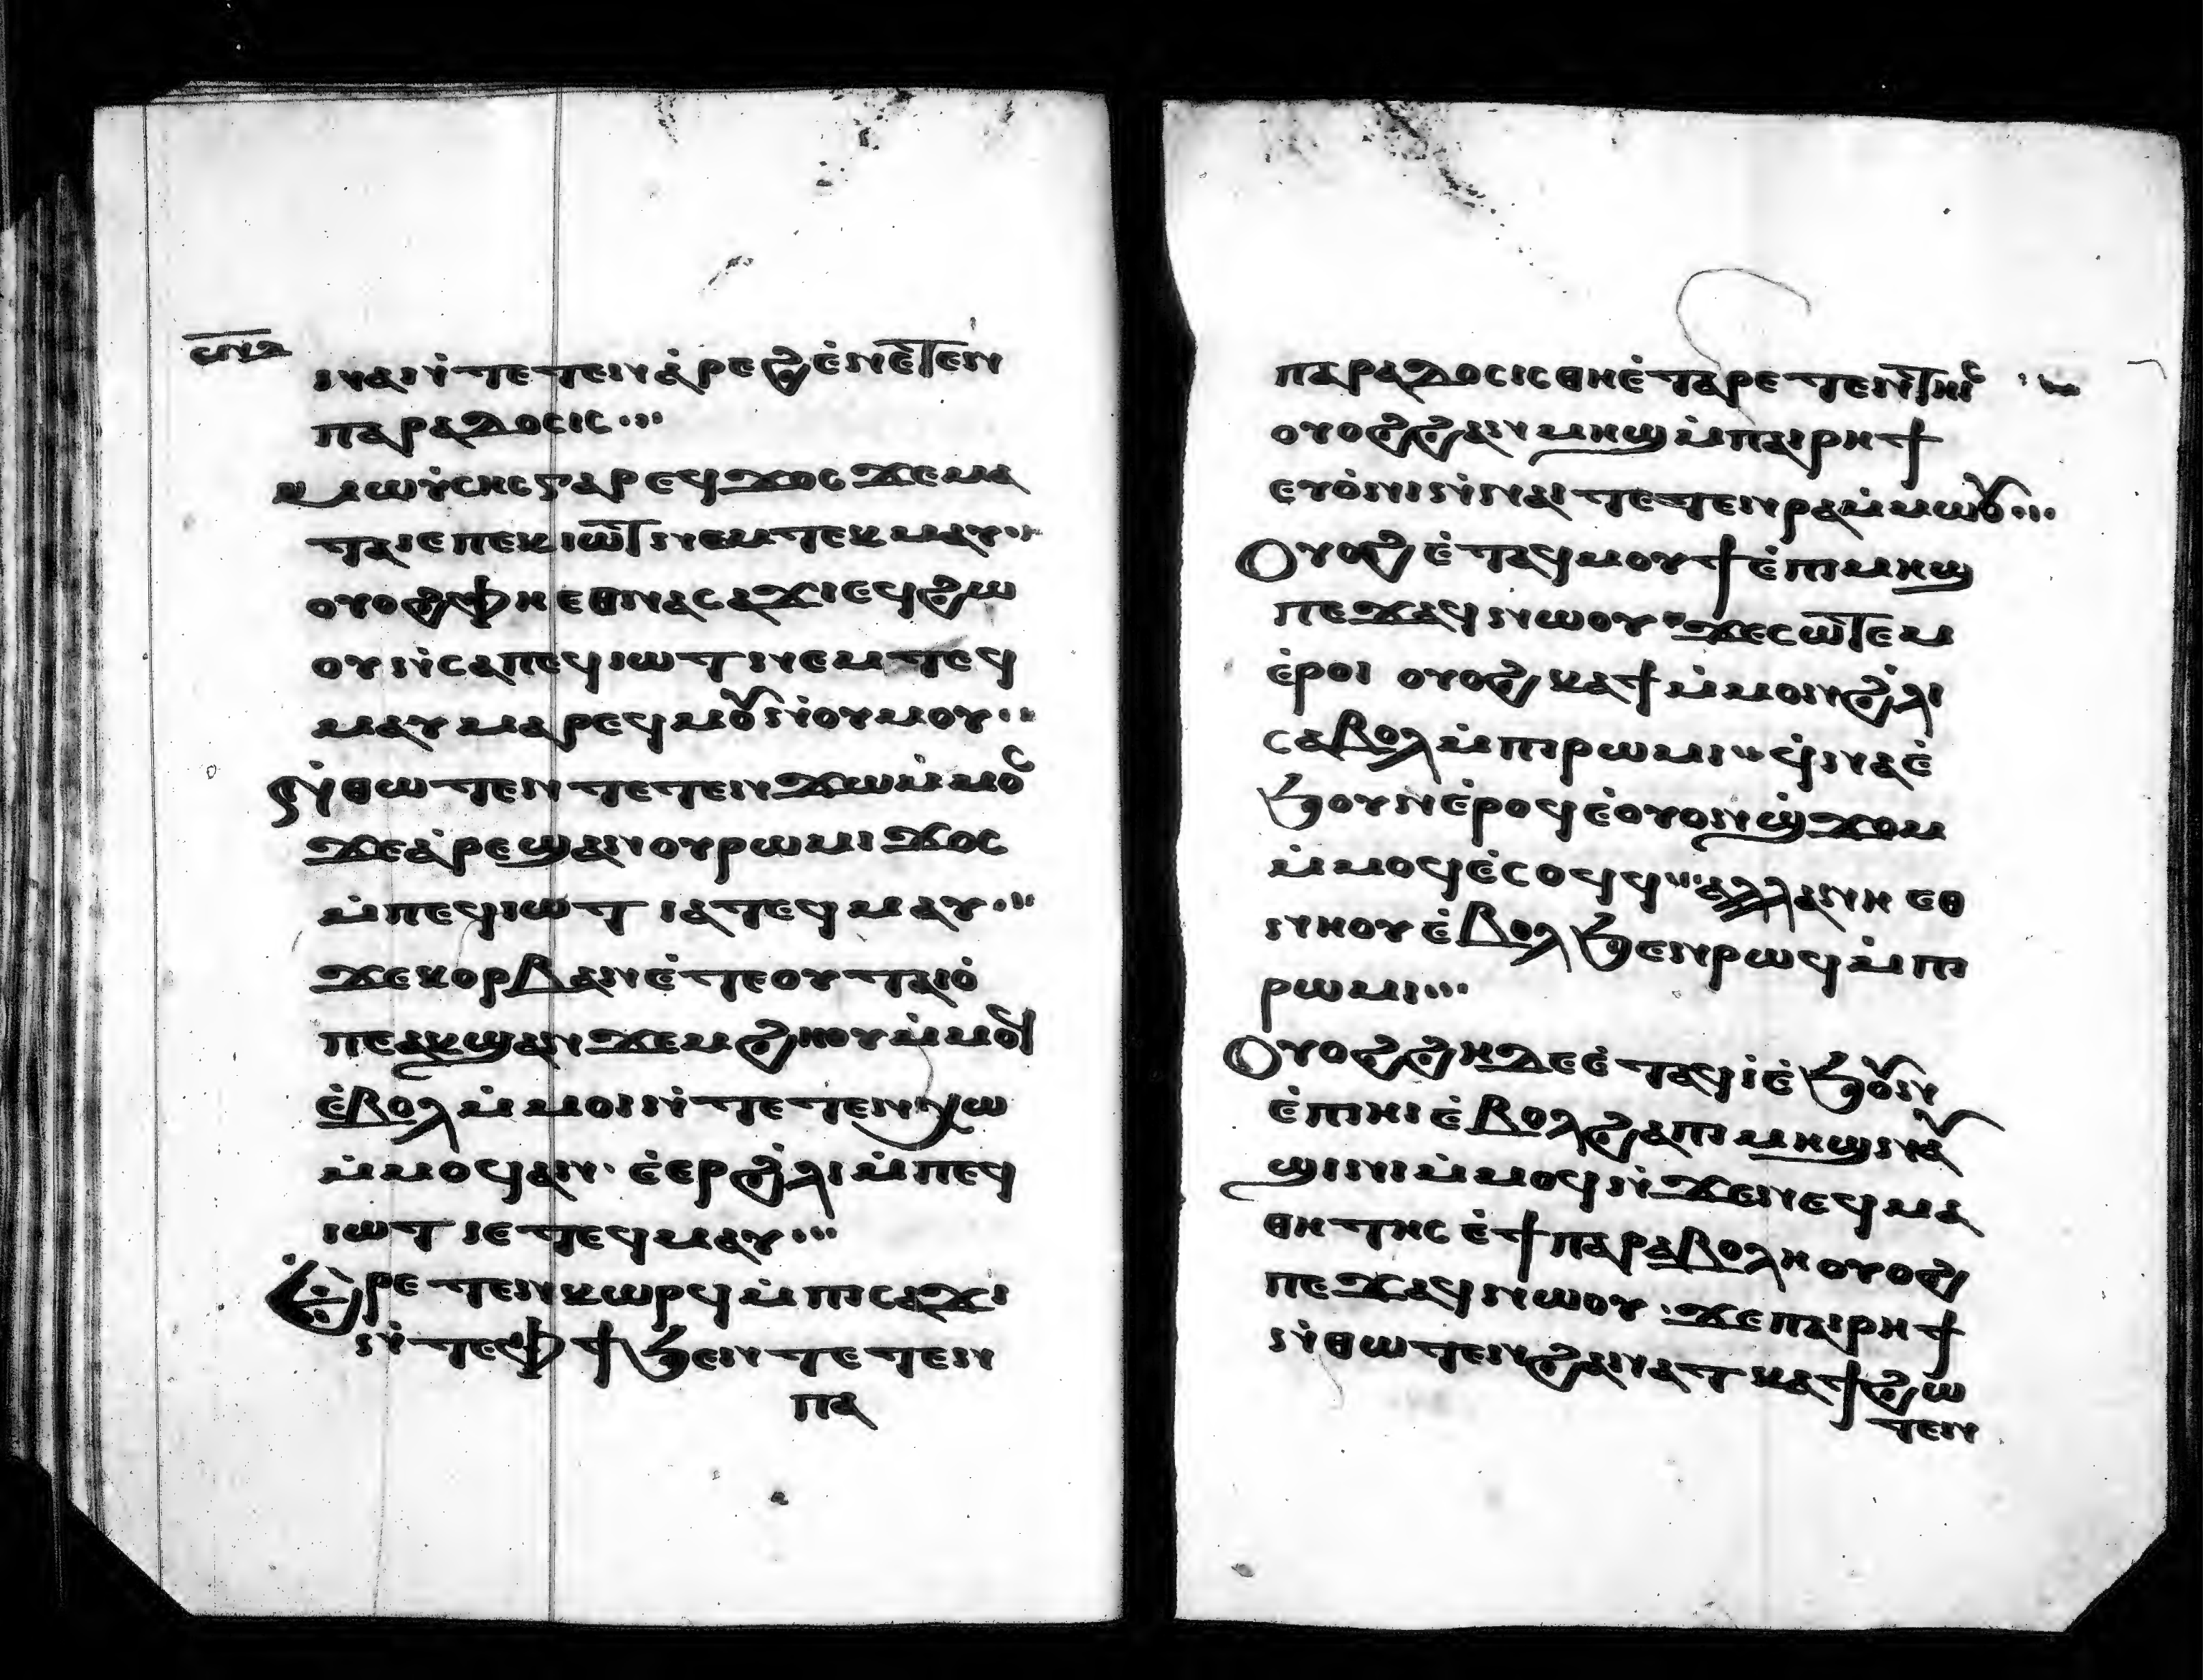 ⲥⲡⲁ
ϩⲓⲛⲁ ⲛ̇ⲧⲉⲧⲉⲛⲁ̇ⲣⲉϩ ⲉ̇ⲛⲉⲧⲉⲛ
ⲡⲁⲣⲁⲇⲟⲥⲓⲥ···
ⲙⲱⲩ̇ⲥⲏⲥ ⲅⲁⲣ ⲉϥϫⲟⲥ ϫⲉ ⲙⲁ
ⲧⲁⲓⲉ ⲡⲉⲕⲓⲱⲧ ⲛⲉⲙ ⲧⲉⲕⲙⲁⲩ··
ⲟⲩⲟϩ ⲫⲏ ⲉⲑⲛⲁⲥⲁϫⲓ ⲉϥϩⲱ
ⲟⲩ ⲛ̇ⲥⲁ ⲡⲉϥⲓⲱⲧ ⲛⲉⲙ ⲧⲉϥ
ⲙⲁⲩ ⲙⲁⲣⲉϥⲙⲟⲩ ⲛ̇ⲟⲩⲙⲟⲩ··
ⲛ̇ⲑⲱⲧⲉⲛ ⲧⲉⲧⲉⲛϫⲱ ⲙ̇ⲙⲟⲥ
ϫⲉ ⲁ̇ⲣⲉϣⲁⲛ ⲟⲩⲣⲱⲙⲓ ϫⲟⲥ
ⲙ̇ⲡⲉϥⲓⲱⲧ ⲓⲁ ⲧⲉϥⲙⲁⲩ··
ϫⲉ ⲕⲟⲣⲃⲁⲛ ⲉ̇ⲧⲉ ⲟⲩⲧⲁⲓⲟ̇
ⲡⲉ ⲁⲕϣⲁⲛϫⲉⲙϩⲏⲟⲩ ⲙ̇ⲙⲟⲓ
ⲉ̇ⲃⲟⲗ ⲙ̇ⲙⲟⲓ ⲛ̇ⲧⲉⲧⲉⲛⲭⲱ
ⲙ̇ⲙⲟϥ ⲁⲛ· ⲉ̇ⲉⲣϩ̇ⲗⲓ ⲙ̇ⲡⲉϥ
ⲓⲱⲧ ⲓⲉ ⲧⲉϥⲙⲁⲩ···
ⲉ̇ⲣⲉⲧⲉⲛⲕⲱⲣϥ ⲙ̇ⲡⲓⲥⲁϫⲓ
ⲛ̇ⲧⲉ ⲫϯ ϧⲉⲛ ⲧⲉⲧⲉⲛ
ⲡⲁ
ⲡⲁⲣⲁⲇⲟⲥⲓⲥ ⲑⲏ ⲉ̇ⲧⲁⲣⲉⲧⲉⲛⲧⲏⲓⲥ
ⲟⲩⲟϩ ϩⲁⲛⲙⲏϣ ⲙ̇ⲡⲁⲓⲣⲏϯ
ⲉⲩⲟ̇ⲛⲓ ⲛ̇ⲛⲁⲓ ⲧⲉⲧⲉⲛⲣⲁ ⲙ̇ⲙⲱⲟⲩ···
ⲟⲩⲟϩ ⲉ̇ⲧⲁϥⲙⲟⲩϯ ⲉ̇ⲡⲓⲙⲏϣ
ⲡⲉϫⲁϥ ⲛⲱⲟⲩ· ϫⲉ ⲥⲱⲧⲉⲙ
ⲉ̇ⲣⲟⲓ ⲟⲩⲟϩ ⲕⲁϯ ⲙ̇ⲙⲟⲛ ϩ̇ⲗⲓ
ⲥⲁⲃⲟⲗ ⲙ̇ⲡⲓⲣⲱⲙⲓ·· ϥ̇ⲛⲁⲉ̇
ϧⲟⲩⲛ ⲉ̇ⲣⲟϥ ⲉ̇ⲟⲩⲟⲛ ϣ̇ϫⲟⲙ
ⲙ̇ⲙⲟϥ ⲉ̇ⲥⲟϥϥ·· ⲁⲗⲗⲁ ⲛⲏ ⲉⲑ
ⲛⲏⲟⲩ ⲉ̇ⲃⲟⲗ ϧⲉⲛ ⲣⲱϥ ⲙ̇ⲡⲓ
ⲣⲱⲙⲓ···
ⲟⲩⲟϩ ϩⲏⲇⲉ ⲉ̇ⲧⲁϥⲓ̇ ⲉ̇ϧⲟⲩⲛ
ⲉ̇ⲡⲓⲏⲓ ⲉ̇ⲃⲟⲗϩⲁ ⲡⲓⲙⲏϣ ⲛⲁⲩ
ϣⲓⲛⲓ ⲙ̇ⲙⲟϥ ⲛ̇ϫⲉ ⲛⲉϥⲙⲁ
ⲑⲏⲧⲏⲥ ⲉ̇ϯⲡⲁⲣⲁⲃⲟⲗⲏ ⲟⲩⲟϩ
ⲡⲉϫⲁϥ ⲛⲱⲟⲩ· ϫⲉ ⲡⲁⲓⲣⲏϯ
ⲛ̇ⲑⲱⲧⲉⲛ ϩⲁⲛⲁⲧⲕⲁϯ ϩⲱ
ⲧⲉⲛ